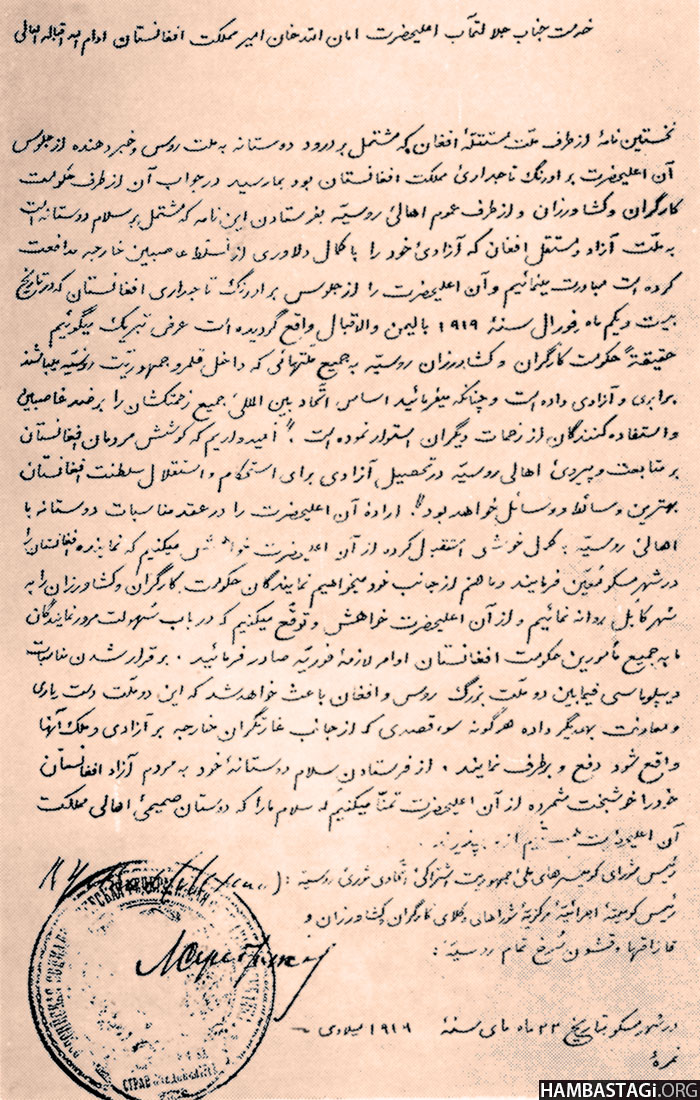 خدمت جناب جلالتمآب اعلیحضرت امان الله خان امیر مملکت افغانستان ادام الله اقباله العالی
نخستین نامهٔ از طرف ملّت مستقلهٔ افغان که مشتمل بر درود دوستانه به ملت روس و خبر دهنده از جلوس
آن اعلیحضرت بر اورنگ تاجداریٔ مملکت افغانستان بود بما رسید در جواب آن از طرف حکومت
کارگران و کشاورزان و از طرف عموم اهالیٔ روسیّه بفرستادن این نامه که مشتمل بر سلام دوستانه است
به ملّت آزاد و مستقل افغان که آزادیٔ خود را با کمال دلاوری از تسلط غاصبین خارجه مدافعت
کرده است مبادرت مینمائیم و آن اعلیحضرت را از جلوس بر اورنگ تاجداری افغانستان که در تاریخ
بیست و یکم ماه فورال سنهٔ ۱۹۱۹ بالیمن والاقبال واقع گردیده است عرض تبریک میگوئیم
حقیقةً حکومت کارگران و کشاورزان روسیّه به جمیع ملّتهائی که داخل قلمرو جمهوریّت روسیّه میباشند
برابری و آزادی داده است و چنانکه میفرمائید اساس اتّحاد بین المللیٔ جمیع زحمتکشان را بر ضد غاصبین
و استفاده کنندگان از زحمات دیگران استوار نموده است. امیدواریم که کوشش مردمان افغانستان
بر متابعت و پیرویٔ اهالی روسیّه در تحصیل آزادی برای استحکام و استقلال سلطنت افغانستان
بهترین وسائط و وسائل خواهد بود. ارادهٔ آن اعلیحضرت را در عقد مناسبات دوستانه با
اهالیٔ روسیّه بکمال خوشی استقبال کرده از آن اعلیحضرت خواهش میکنیم که نماینده افغانستان را
در شهر مسکو مُعیّن فرمایند و ما هم از جانب خود میخواهیم نمایندگان حکومت کارگران و کشاورزان را به
شهر کابل روانه نمائیم و از آن اعلیحضرت خواهش و توقّع میکنیم که در باب سُهولت مرور نمایندگان
ما به جمیع مأمورین حکومت افغانستان اوامر لازمهٔ فوریّه صادر فرمائید. برقرار شدن مناسبات
دیپلوماسی فیمابین دو ملّت بزرگ روس و افغان باعث خواهد شد که این دو ملّت دست یاری
و معاونت بهمدیگر داده هرگونه سوء قصدی که از جانب غارتگران خارجه بر آزادی و ملک آنها
واقع شود دفع و برطرف نمایند. از فرستادن سلام دوستانهٔ خود به مردم آزاد افغانستان
خود را خوشبخت شمرده از آن اعلیحضرت تمنّا میکنیم که سلام ما را که دوستان صمیمیٔ اهالی مملکت
آن اعلیحضرت هستیم از ما بپذیرند.
رئیس شورای کومیسرهای ملّیٔ جمهوریت اشتراکیٔ اتّحادی شورویٔ روسیّه:
رئیس کومیتهٔ اجرائیّهٔ مرکزیهٔ شوراهای وکلای کارگران و کشاورزان و
قازاقها و قشون سُرخ تمام روسیّه:
در شهر مسکو بتاریخ ۲۳ ماه مای سنهٔ ۱۹۱۹ میلادی
نمرهٔ
HAMBASTAGI.ORG